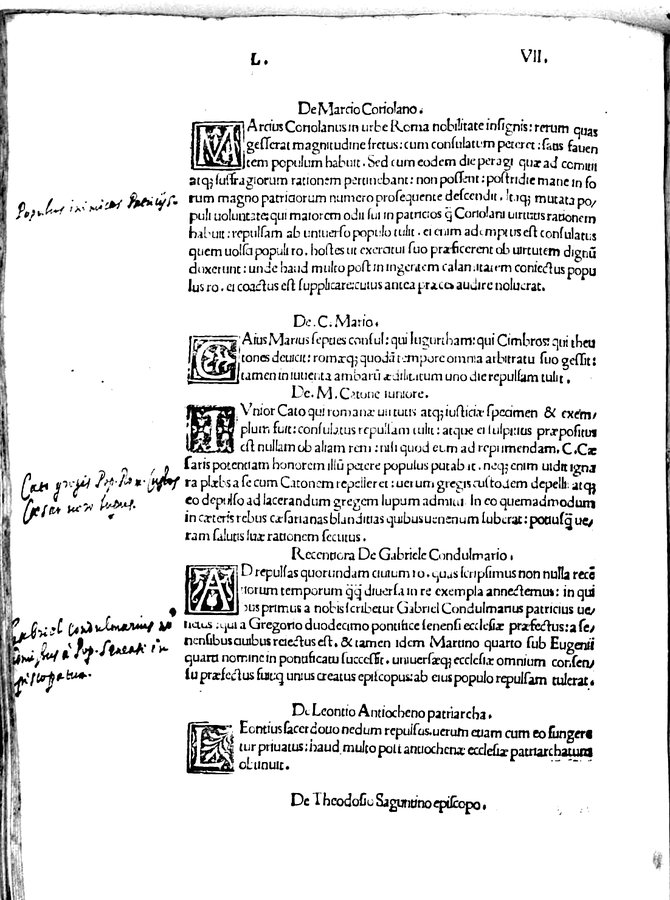 L. VII.
De Marcio Coriolano.
MArcius Coriolanus in urbe Roma nobilitate insignis: rerum quas
gesserat magnitudine fretus: cum consulatem peteret: satis fauen
tem populum habuit. Sed cum eodem die peragi quæ ad comitii
atq; suffragiorum rationem pertinebant: non possent: postridie mane in fo
rum magno patriciorum numero prosequente descendit. Itaq; mutata po/
puli uoluntate: qui maiorem odii sui in patricios q̃ Coriolani uirtutis rationem
habuit: repulsam ab uniuerso populo tulit. ei enim ademptus est consulatus
quem uolsci populi ro. hostes ut exercitui suo præficerent ob uirtutem dignũ
duxerunt: unde haud multo post in ingentem calamitatem coniectus popu
lus ro. ei coactus est supplicare: cuius antea præces audire noluerat.
De .C. Mario.
CAius Marius septies consul: qui Iugurtham: qui Cimbros: qui theu
tones deuicit: romæq; quodã tempore omnia arbitratu suo gessit:
tamen in iuuenta ambarũ ædilitatum uno die repulsam tulit.
De .M. Catone iuniore.
IVnior Cato qui romanæ uirtutis atq; iusticiæ specimen & exem/
plum fuit: consulatus repulsam tulit: atque ei sulpitius præpositus
est nullam ob aliam rem: nisi quod eum ad reprimendam .C. Cæ
saris potentiam honorem illũ petere populus putabat. neq; enim uidit igna
ra plæbs a se cum Catonem repelleret: uerum gregis custodem depelli: atq;
eo depulso ad lacerandum gregem lupum admitti. In eo quemadmodum
in cæteris rebus cæsarianas blanditias quibus uenenum suberat: potiusq̃ ue/
ram salutis suæ rationem secutus.
Recentiora De Gabriele Condulmario.
AD repulsas quorundam ciuium ro. quas scripsimus non nulla recẽ
tiorum temporum q̃q̃ diuersa in re exempla annectemus: in qui
bus primus a nobis scribetur Gabriel Condulmarius patricius ue/
netus: qui a Gregorio duodecimo pontifice senensi ecclesiæ præfectus: a se/
nensibus ciuibus reiectus est. & tamen idem Martino quarto sub Eugenii
quarti nomine in pontificatu successit. uniuersæq; ecclesiæ omnium consen/
su præfectus fuit: q unius creatus episcopus: ab eius populo repulsam tulerat.
De Leontio Antiocheno patriarcha.
LEontius sacerdotio nedum repulsus. uerum etiam cum eo fungere
tur priuatus: haud multo post antiochenæ ecclesiæ patriarchatum
obtinuit.
De Theodosio Saguntino episcopo.
Populus inimicus Patricijs.
Cato gregis Pop. Ro. Custos
Cæsar uero lupus.
Gabriel Condulmarius
à Pop. Senensi in
episcopatu.